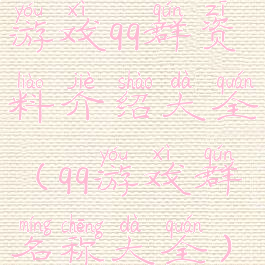 yóu xì qún zī
游戏qq群资
liào jiè shào dà quán
料介绍大全
yóu xì qún
（qq游戏群
míng chēng dà quán
名称大全）